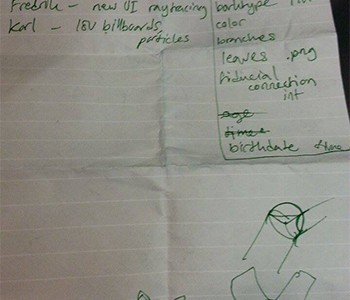 Fredrik - new UI raytracing
Karl - 18V billboards,
particles
barktype
color
branches
leaves .png
fiducial
connection
int
age
time
birthdate